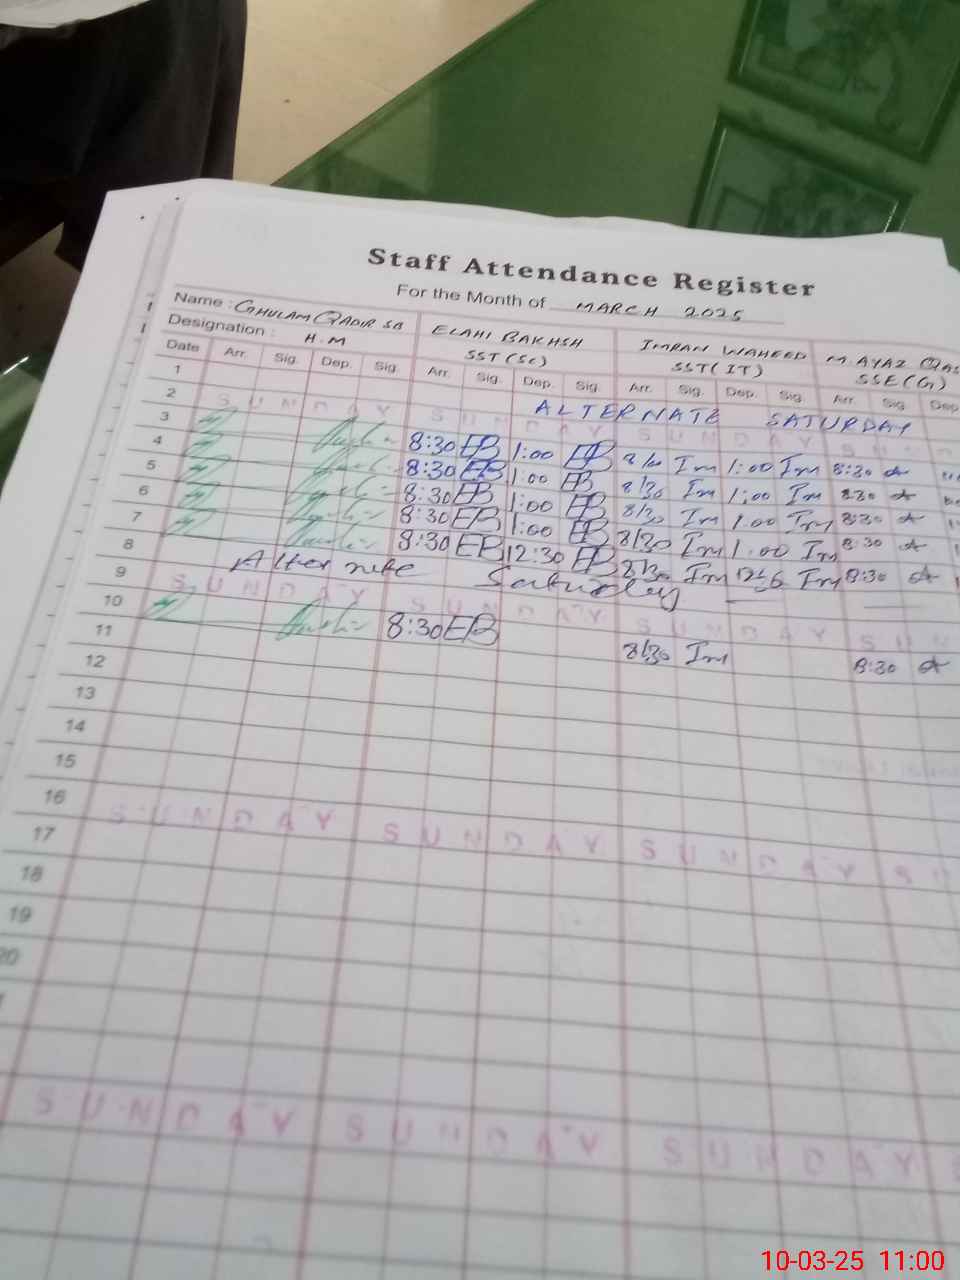 Staff Attendance Register
For the Month of MARCH 2025
Name: GHULAM QADIR SB ELAHI BAKHSH IMRAN WAHEED M. AYAZ
Designation: H.M SST (SC) SST (IT) SSE (G)
Date Arr. Sig. Dep. Sig Arr. Sig. Dep. Sig Arr. Sig. Dep. Sig. Arr. Sig. Dep
1 ALTERNATE SATURDAY
2 SUNDAY SUNDAY SUNDAY
3 8:30 EB 1:00 EB Im 1:00 Im 8:30
4 8:30 EB 1:00 EB 8/30 Im 1:00 Im 8:30
5 8:30 EB 1:00 EB 8/30 Im 1:00 Im 8:30
6 8:30 EB 1:00 EB 8/30 Im 1:00 Im 8:30
7 8:30 EB 12:30 EB 8/30 Im Im 8:30
8 Alternate Saturday
9 SUNDAY SUNDAY SUNDAY SUN
10 8:30 EB 8/30 Im 8:30
11
12
13
14
15
16 SUNDAY SUNDAY SUNDAY SU
17
18
19
20
SUNDAY SUNDAY SUNDAY S
10-03-25 11:00